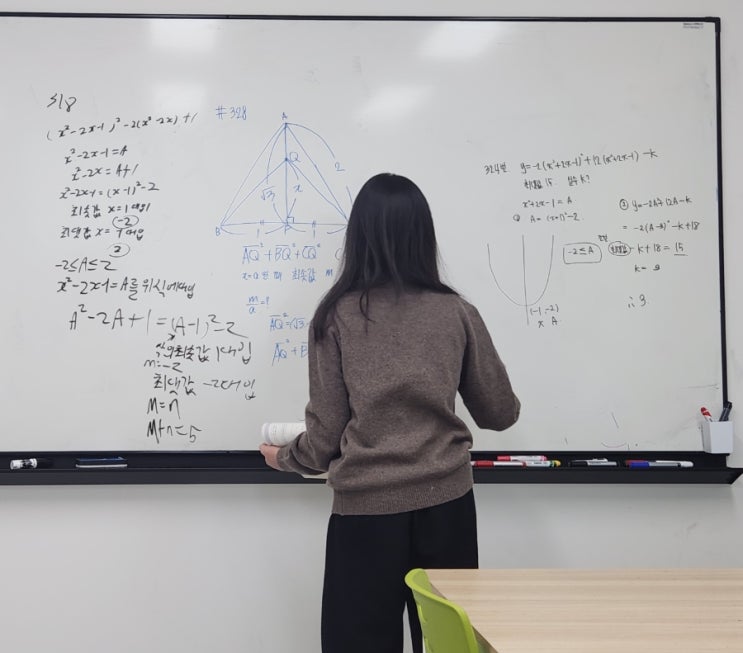 318
(x²-2x-1)²-2(x²-2x)+1
x²-2x-1=A
x²-2x=A+1
x²-2x-1=(x-1)²-2
최솟값 x=1 대입
(-2)
최댓값 x= 대입
2
-2≤A≤2
x²-2x-1=A를 위식에대입
A²-2A+1=(A-1)²-2
최솟값 1대입
m=-2
최댓값 -2대입
M=n
M+n=5
#328
A
Q
2
√3
x
B
1
AQ²+BQ²+CQ²
최솟값 m
m/a=?
AQ²=(√3
AQ²+B
324번 y=-2(x²+2x-1)²+12(x²+2x-1)-k
최댓값 15. k?
x²+2x-1=A
① A=(x+1)²-2
-2≤A
(-1,-2)
A
② y=-2A²+12A-k
=-2(A-3)²-k+18
최댓값 -k+18=15
k=
∴3